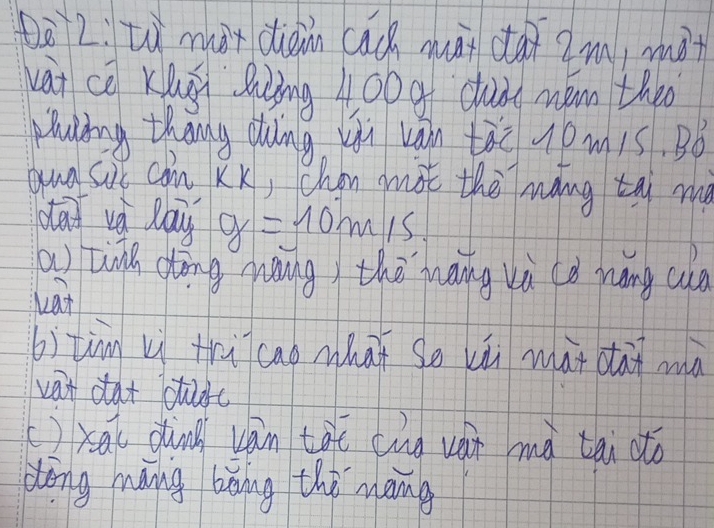 Đề 2: từ một điểm cách mặt đất 2m, một
vật có khối lượng 400g được ném theo
phương thẳng đứng với vận tốc 10m/s. Bỏ
qua sức cản KK, chọn mốc thế năng tại mặ
đất và lấy g = 10m/s.
a) Tính động năng, thế năng và cơ năng của
vật
b) Tìm vị trí cao nhất so với mặt đất mà
vật đạt được
c) xác định vận tốc của vật mà tại đó
động năng bằng thế năng